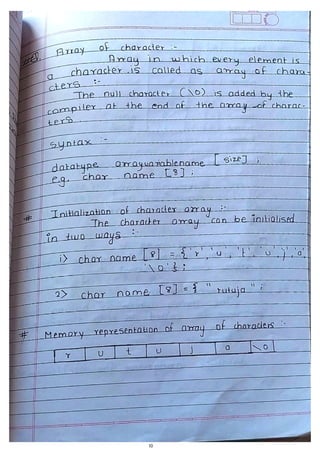 Array of character :-
Array in which every element is
a character is called as array of chara-
cters :-
The null character (\0) is added by the
compiler at the end of the array of charac-
ters.
Syntax :-
datatype arrayvariablename [size] ;
e.g. char name [8] ;
# Initialization of character array :-
The character array can be initialised
in two ways :-
1) char name [8] = { 'r', 'u', 't', 'u', 'j', 'a'
'\0' } ;
2) char name [8] = { "rutuja" ;
# Memory representation of array of characters :-
r u t u j a \0